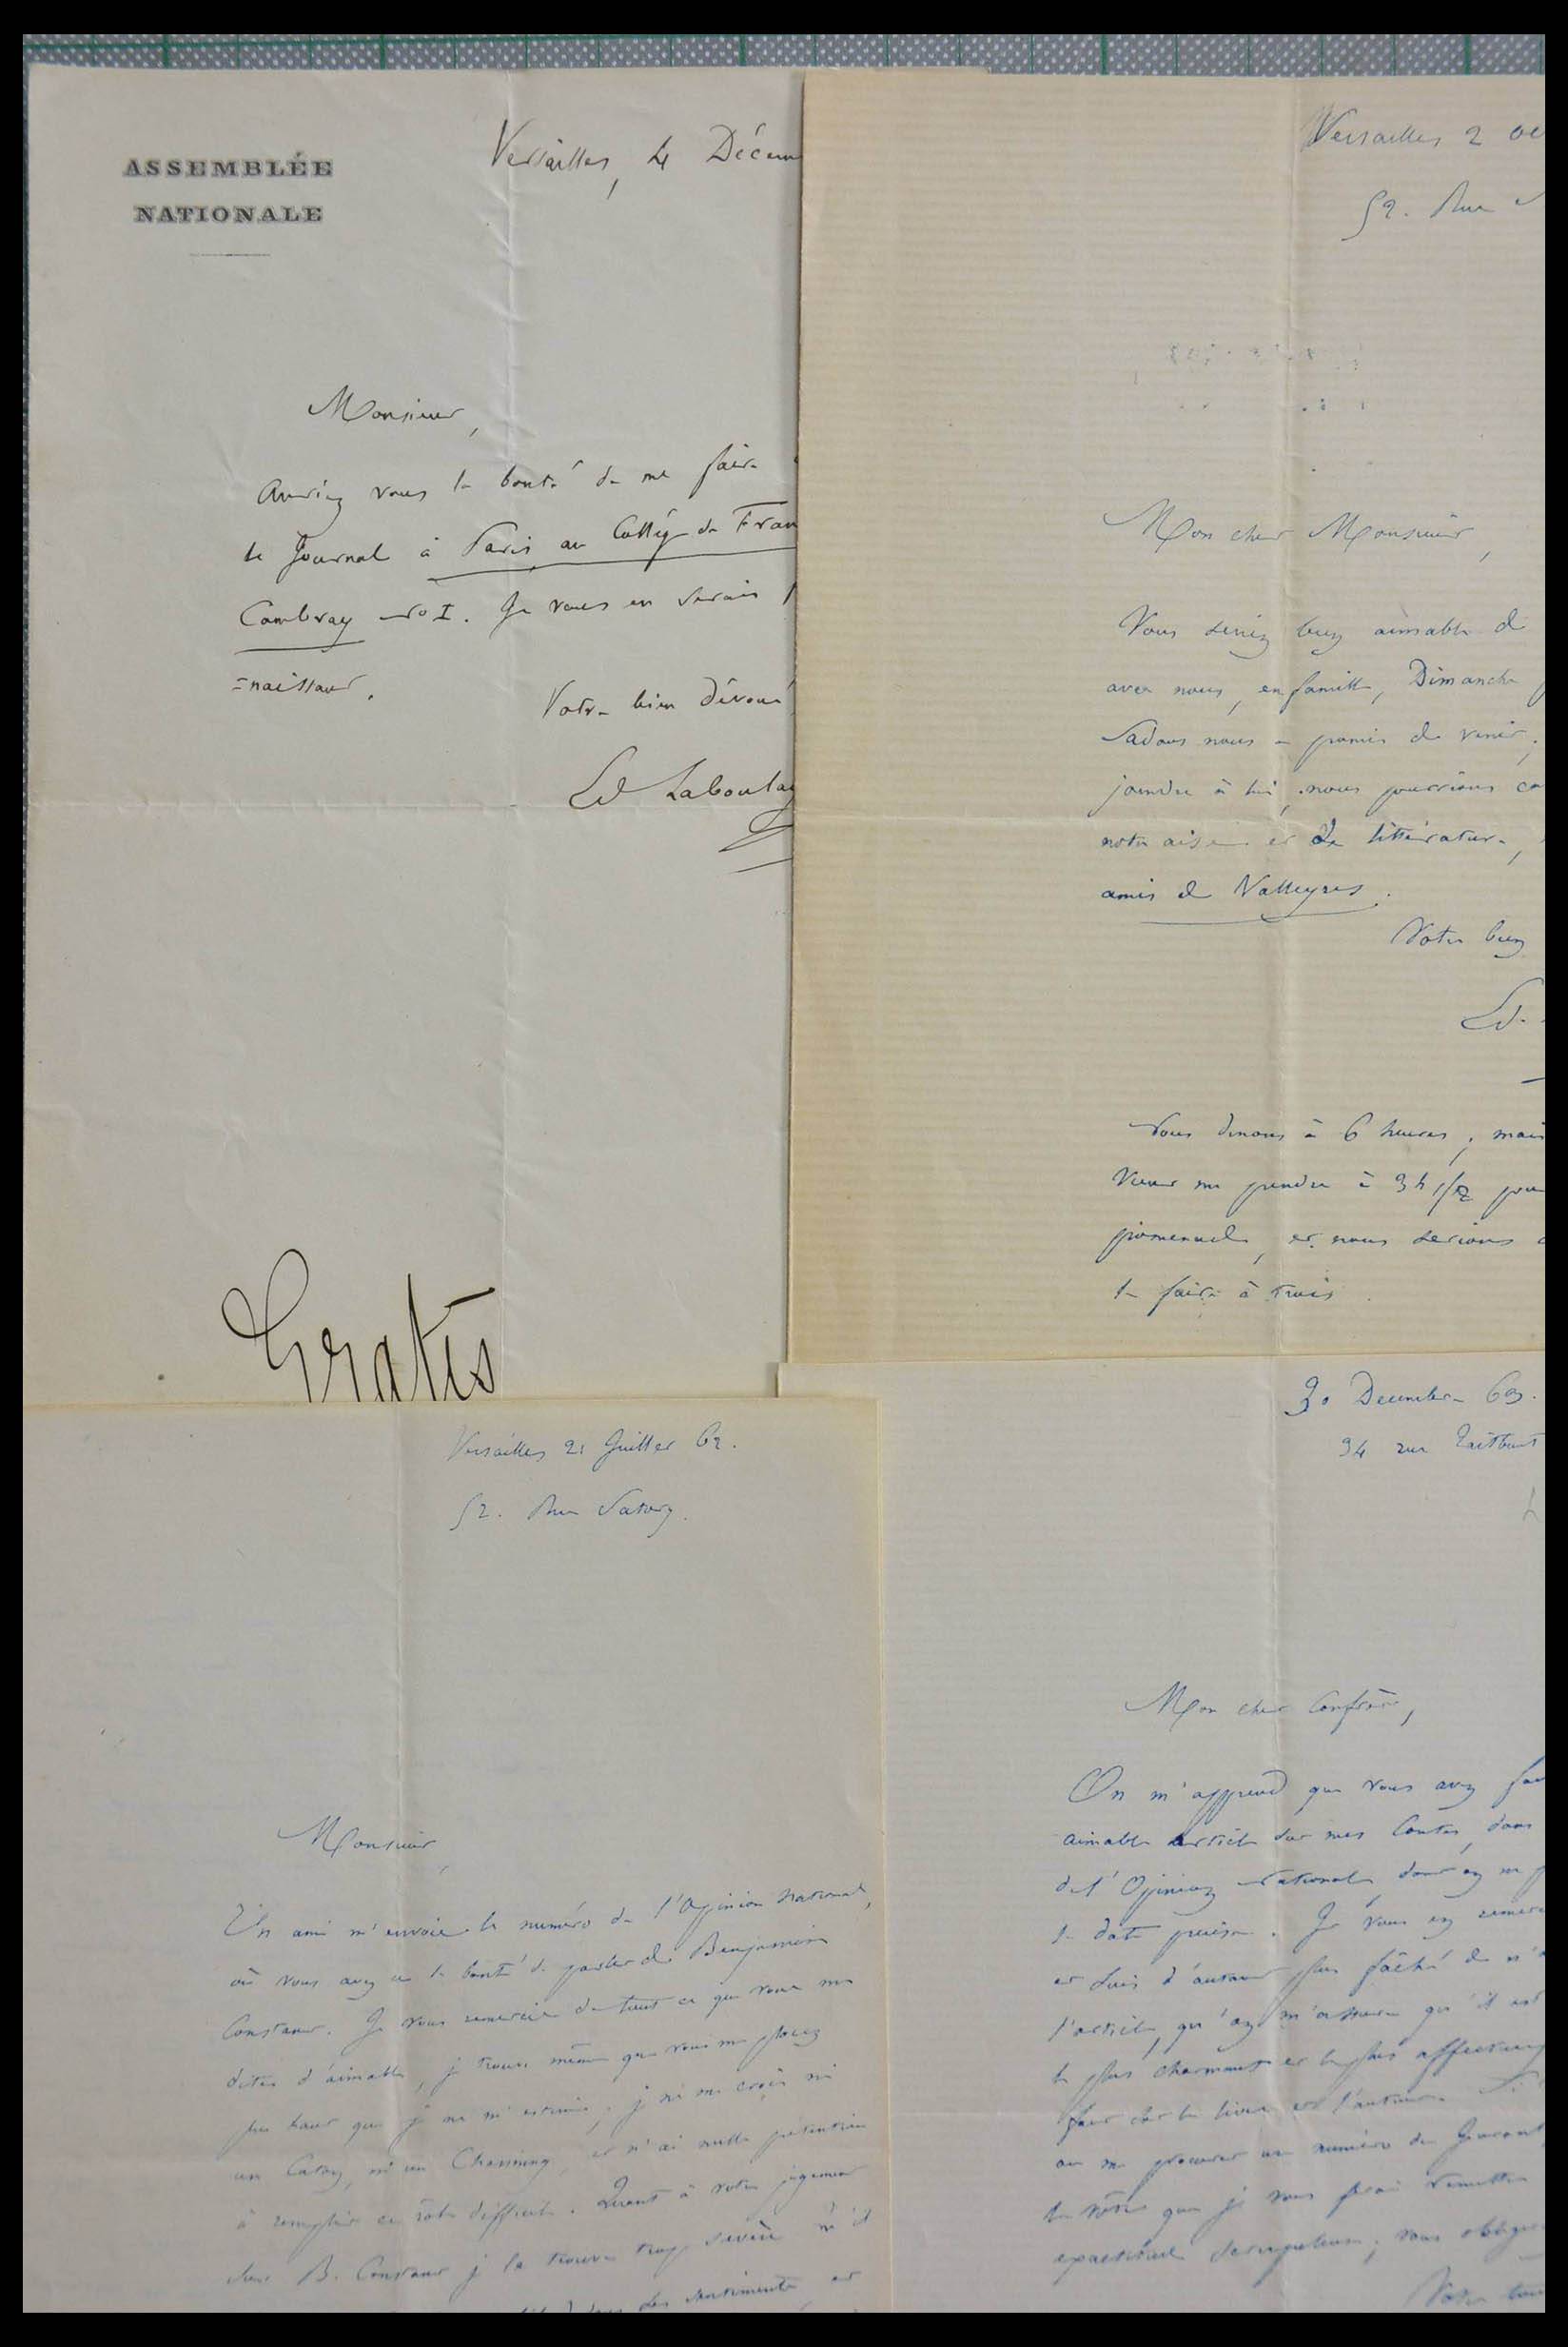 ASSEMBLÉE
NATIONALE
Versailles, 4 Décem
Monsieur,
Auriez vous la bonté de me faire
le Journal à Paris au Collège de Fran
Cambray no I. Je vous en serais
=naissant.
Votre bien dévoué
Ed Laboulay
Gratis
Versailles 2 oc
52. Rue
Mon cher Monsieur,
Vous seriez bien aimable de
avec nous, en famille, Dimanche
nous a promis de venir,
joindre à lui, nous pourrions ca
notre aise et de littérature,
amis de Valleyres.
Votre bien
Ed.
Nous dinons à 6 heures, mais
venir me prendre à 3h 1/2 pou
promenade, et nous serions
la faire à trois.
Versailles 21 Juillet 62.
52. Rue Satory.
Monsieur,
Un ami m'envoie le numéro de l'Opinion nationale,
où vous avez eu la bonté de parler de Benjamin
Constant. Je vous remercie de tout ce que vous me
dites d'aimable, je trouve même que vous me placez
plus haut que je ne m'estime; je ne me crois ni
un Caton, ni un Channing, et n'ai nulle prétention
à remplir ce rôle difficile. Quant à votre jugement
sur B. Constant je le trouve trop sévère
des sentiments et
30 Décembre 63.
34 rue Taitbout
Mon cher Confrère,
On m'apprend que vous avez fai
aimable article sur mes Contes, dans
de l'Opinion nationale dont on ne p
la date précise. Je vous en remerc
et suis d'autant plus fâché de n'a
l'article, qu'on m'assure qu'il est
le plus charmant et le plus affectueux
pour le livre et l'auteur.
ou me procurer un numéro du Journal
le vôtre que je vous ferai remettre
exactitude scrupuleuse; vous oblige
Votre